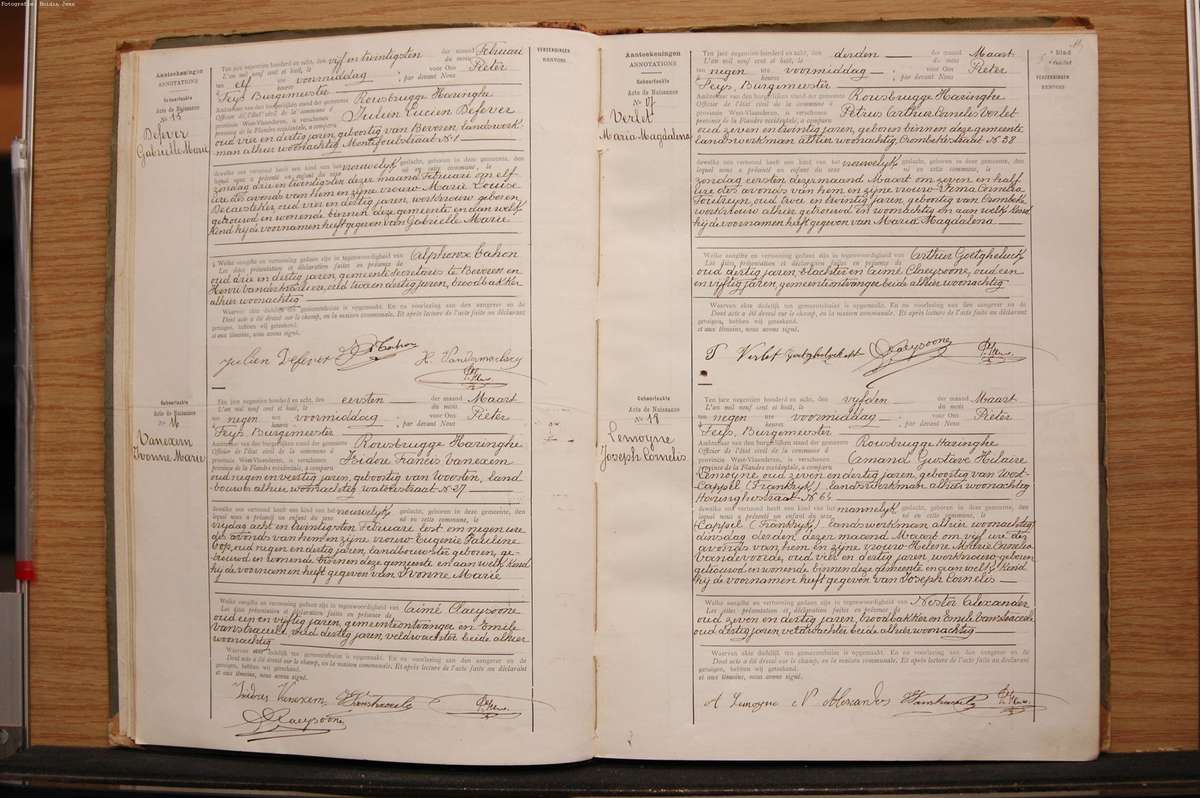 Fotografie: Buidin Jens
Aanteekeningen
ANNOTATIONS
Geboorteakte
Acte de Naissance
N° 15
Defever
Gabrielle Marie
Ten jare negentien honderd en acht, den vijf en twintigsten der maand Februari
L'an mil neuf cent et huit, le du mois
ten elf ure voormiddag ; voor Ons Pieter
heures par devant Nous
Feys, Burgmeester
Ambtenaar van den burgerlijken stand der gemeente Rousbrugge Haringhe
Officier de l'état civil de la commune d
provincie West-Vlaanderen, is verschenen Julien Lucien Defever
province de la Flandre occidentale, a comparu
oud vier en dertig jaren, geboortig van Beveren, landswerk-
man alhier woonachtig, Montifoutstraat N° 1
dewelke ons vertoond heeft een kind van het vrouwelijk geslacht, geboren in deze gemeente, den
lequel nous a présenté un enfant du sexe né en cette commune, le
zondag drie en twintigsten dezer maand Februari om elf
ure des avonds van hem en zijne vrouw Marie Louise
Decaesteker, oud vier en dertig jaren, werkvrouw, geboren
getrouwd en wonende binnen deze gemeente en aan welk
kind hij de voornamen heeft gegeven van Gabrielle Marie
Welke aangifte en vertooning gedaan zijn in tegenwoordigheid van Alphonse Cahon
Les dites présentation et déclaration faites en présence de
oud drie en dertig jaren, gemeente secretaris te Beveren en
Henri Vandermarliere, oud twee en dertig jaren, broodbakker
alhier woonachtig
Waarvan akte dadelijk ten gemeentehuize is opgemaakt. En na voorlezing aan den aangever en de
Dont acte a été dressé sur le champ, en la maison communale. Et après lecture de l'acte faite au déclarant
getuigen, hebben wij geteekend.
et aux témoins, nous avons signé.
Julien Defever A Cahon H. Vandermarliere
P. Feys
Geboorteakte
Acte de Naissance
N° 16
Vanexem
Yvonne Marie
Ten jare negentien honderd en acht, den eersten der maand Maart
L'an mil neuf cent et huit, le du mois
ten negen ure voormiddag ; voor Ons Pieter
heures par devant Nous
Feys, Burgmeester
Ambtenaar van den burgerlijken stand der gemeente Rousbrugge Haringhe
Officier de l'état civil de la commune d
provincie West-Vlaanderen, is verschenen Isidoor Francis Vanexem
province de la Flandre occidentale, a comparu
oud negen en veertig jaren, geboortig van Woesten, land
bouwer alhier woonachtig, N° 27
dewelke ons vertoond heeft een kind van het vrouwelijk geslacht, geboren in deze gemeente, den
lequel nous a présenté un enfant du sexe né en cette commune, le
vrijdag acht en twintigsten Februari lest om negen ure
des avonds van hem en zijne vrouw Eugenie Pauline
Cop, oud negen en dertig jaren, landbouwster geboren, ge-
trouwd en wonende binnen deze gemeente en aan welk kind
hij de voornamen heeft gegeven van Yvonne Marie
Welke aangifte en vertooning gedaan zijn in tegenwoordigheid van Aimé Claeysoone
Les dites présentation et déclaration faites en présence de
oud een en vijftig jaren, gemeentontvanger en Emile
Vanstraceele, oud dertig jaren, veldwachter beide alhier
woonachtig
Waarvan akte dadelijk ten gemeentehuize is opgemaakt. En na voorlezing aan den aangever en de
Dont acte a été dressé sur le champ, en la maison communale. Et après lecture de l'acte faite au déclarant
getuigen, hebben wij geteekend.
et aux témoins, nous avons signé.
Isidor Vanexem E Vanstraceele P. Feys
Claeysoone
VERZENDINGEN
RENVOIS
Aanteekeningen
ANNOTATIONS
Geboorteakte
Acte de Naissance
N° 17
Verlet
Maria Magdalena
Ten jare negentien honderd en acht, den derden der maand Maart
L'an mil neuf cent et huit, le du mois
ten negen ure voormiddag ; voor Ons Pieter
heures par devant Nous
Feys, Burgmeester
Ambtenaar van den burgerlijken stand der gemeente Rousbrugge Haringhe
Officier de l'état civil de la commune d
provincie West-Vlaanderen, is verschenen Petrus Arthur Cornelis Verlet
province de la Flandre occidentale, a comparu
oud zeven en twintig jaren, geboren binnen deze gemeente
landswerkman alhier woonachtig, Crombekestraat N° 28
dewelke ons vertoond heeft een kind van het vrouwelijk geslacht, geboren in deze gemeente, den
lequel nous a présenté un enfant du sexe né en cette commune, le
zondag eersten dezer maand Maart om zeven en half
ure des avonds van hem en zijne vrouw Irma Cornelia
oud twee en twintig jaren, geboortig van Crombeke
werkvrouw alhier getrouwd en woonachtig en aan welk kind
hij de voornamen heeft gegeven van Maria Magdalena
Welke aangifte en vertooning gedaan zijn in tegenwoordigheid van Arthur Goetgheluck
Les dites présentation et déclaration faites en présence de
oud dertig jaren, blachter en Aimé Claeysoone, oud een
en vijftig jaren, gemeentontvanger beide alhier woonachtig
Waarvan akte dadelijk ten gemeentehuize is opgemaakt. En na voorlezing aan den aangever en de
Dont acte a été dressé sur le champ, en la maison communale. Et après lecture de l'acte faite au déclarant
getuigen, hebben wij geteekend.
et aux témoins, nous avons signé.
P Verlet Goetgheluck A Claeysoone P. Feys
Geboorteakte
Acte de Naissance
N° 18
Lemoyne
Joseph Cornelis
Ten jare negentien honderd en acht, den vijfden der maand Maart
L'an mil neuf cent et huit, le du mois
ten negen ure voormiddag ; voor Ons Pieter
heures par devant Nous
Feys, Burgmeester
Ambtenaar van den burgerlijken stand der gemeente Rousbrugge Haringhe
Officier de l'état civil de la commune d
provincie West-Vlaanderen, is verschenen Amand Gustave Hilaire
province de la Flandre occidentale, a comparu
Lemoyne oud zeven en dertig jaren, geboortig van West-
Cappel (Frankrijk) landswerkman alhier woonachtig
Haringhestraat N° 64
dewelke ons vertoond heeft een kind van het mannelijk geslacht, geboren in deze gemeente, den
lequel nous a présenté un enfant du sexe né en cette commune, le
Cappel (Frankrijk) landswerkman alhier woonachtig
dinsdag derden dezer maand Maart om vijf ure des
avonds van hem en zijne vrouw Helene Marie Cornelia
Vandevoorde, oud vier en dertig jaren, werkvrouw geboren
getrouwd en wonende binnen deze gemeente en aan welk kind
hij de voornamen heeft gegeven van Joseph Cornelis
Welke aangifte en vertooning gedaan zijn in tegenwoordigheid van Nestor Alexander
Les dites présentation et déclaration faites en présence de
oud zeven en dertig jaren, broodbakker en Emile Vanstraceele
oud dertig jaren, veldwachter beide alhier woonachtig
Waarvan akte dadelijk ten gemeentehuize is opgemaakt. En na voorlezing aan den aangever en de
Dont acte a été dressé sur le champ, en la maison communale. Et après lecture de l'acte faite au déclarant
getuigen, hebben wij geteekend.
et aux témoins, nous avons signé.
A Lemoyne N Alexander E Vanstraceele P. Feys
5e Blad
e feuillet
VERZENDINGEN
RENVOIS